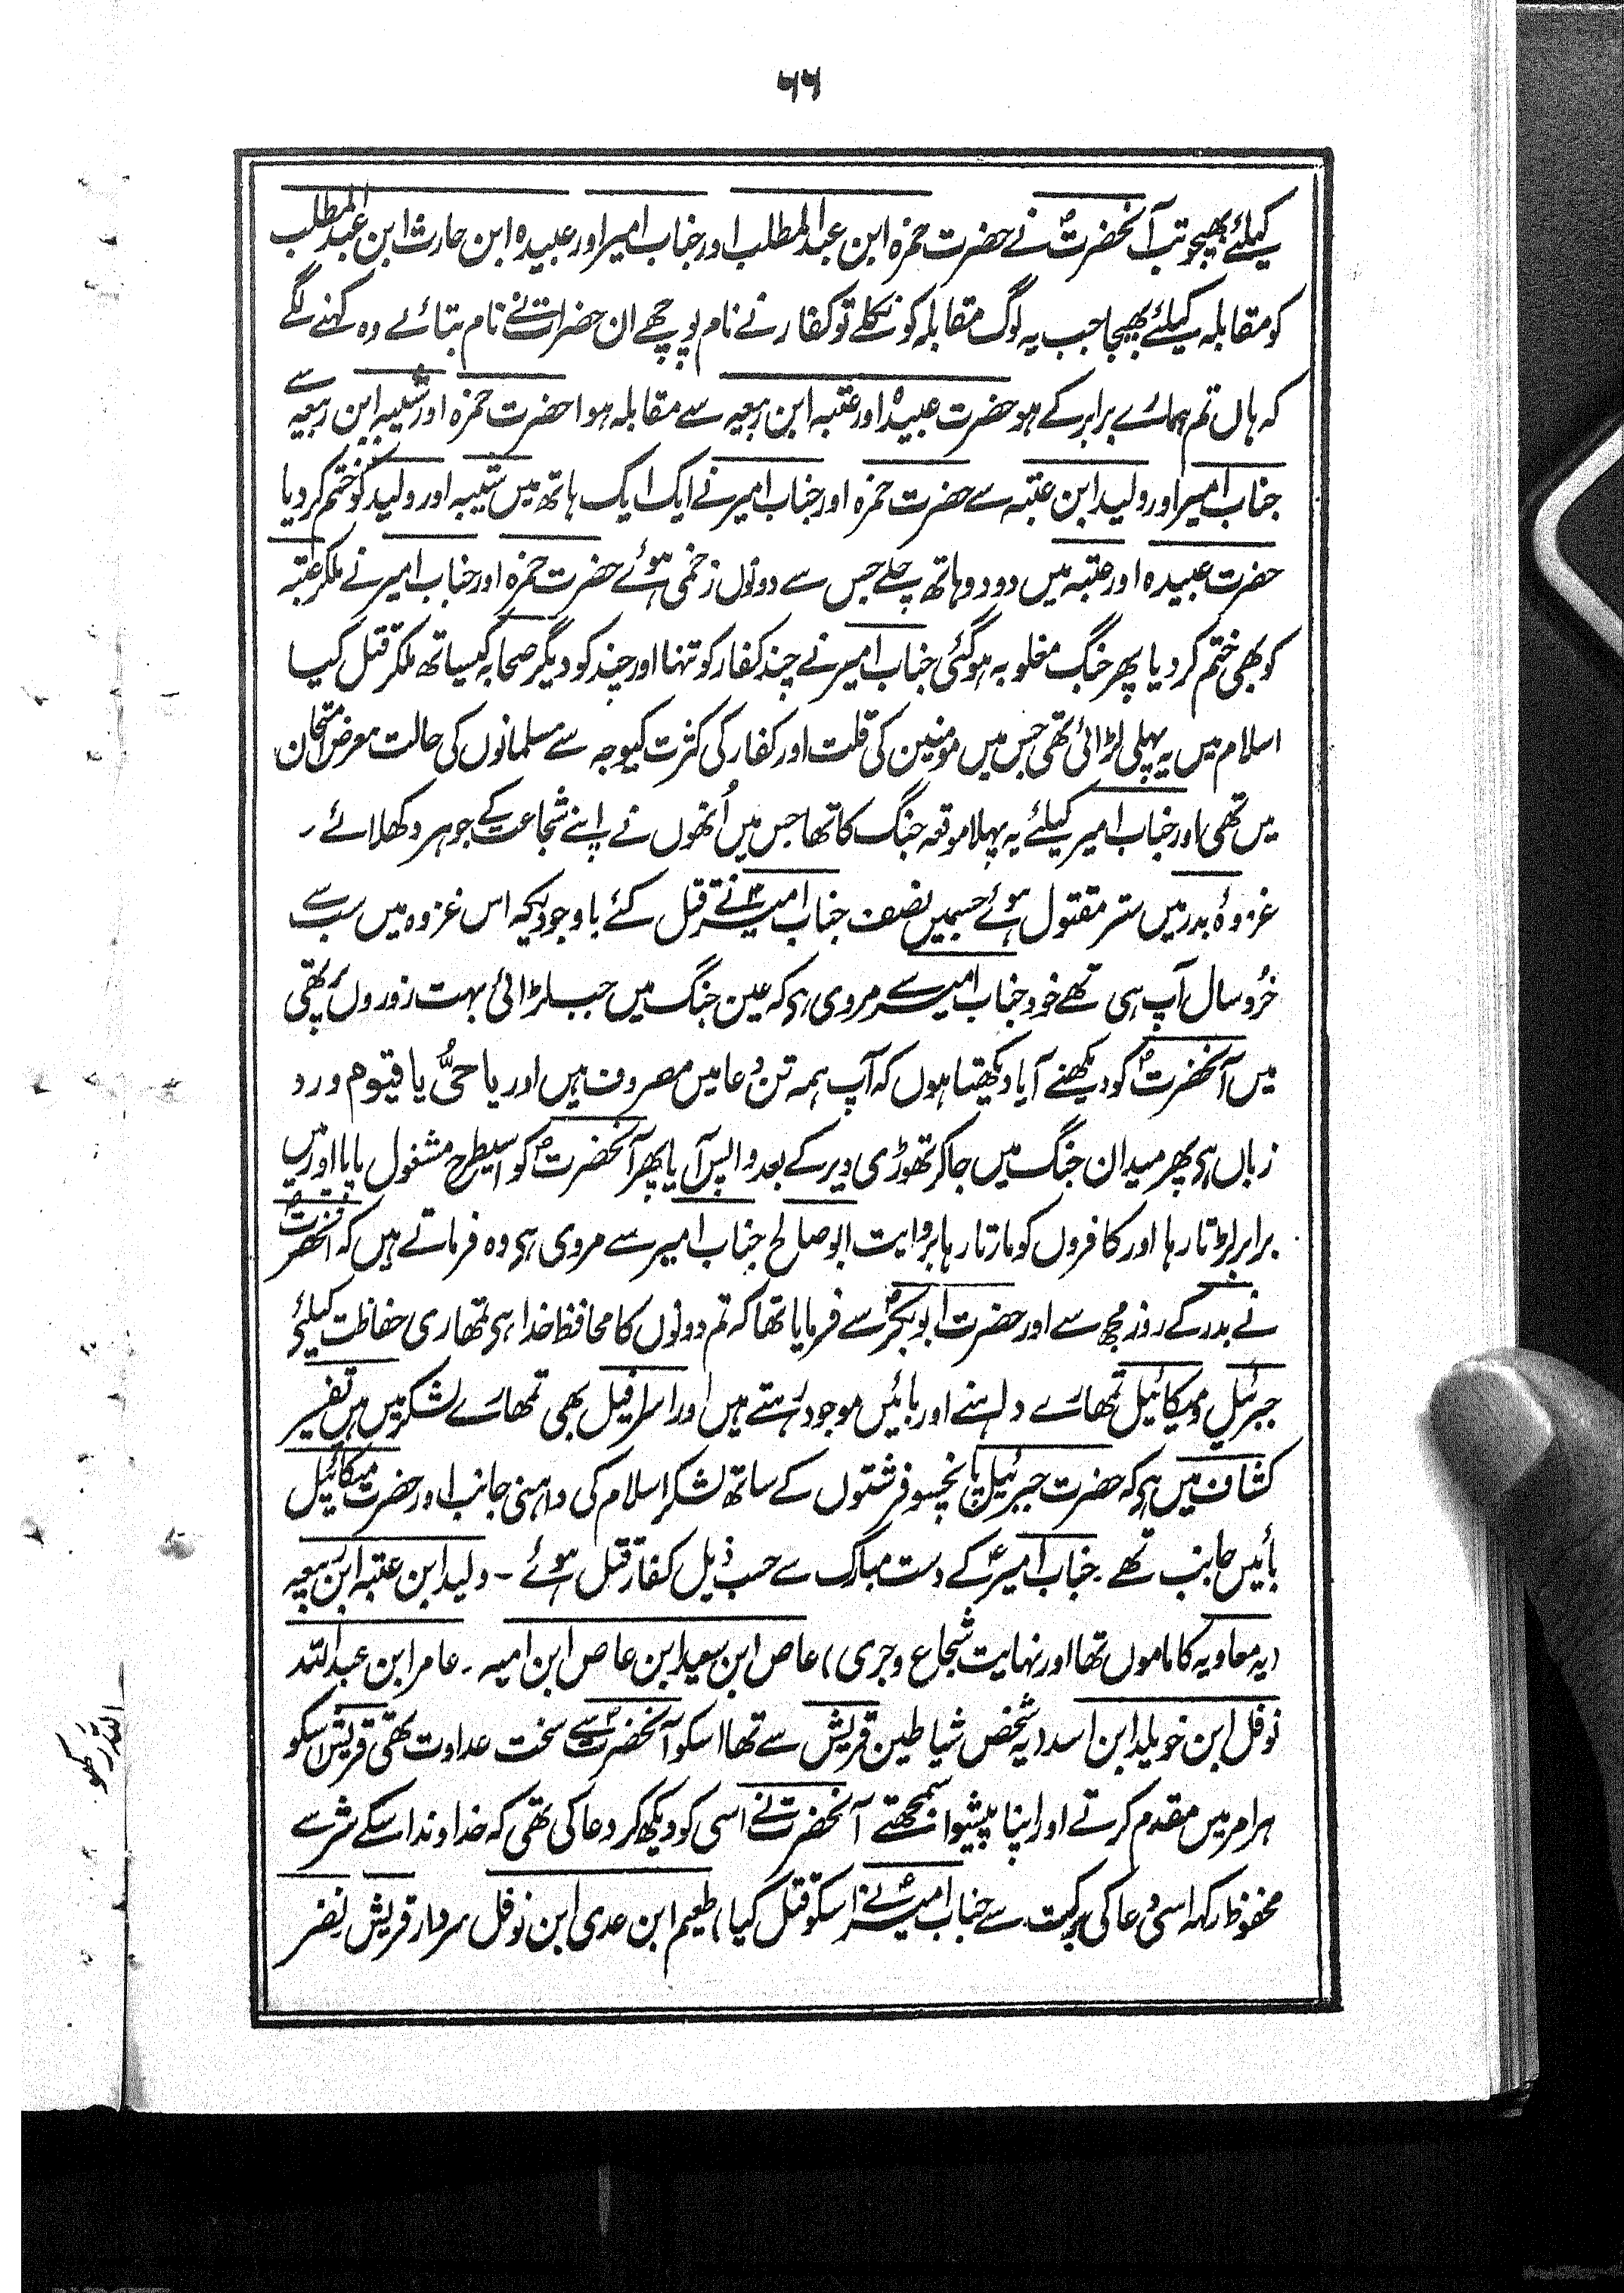 ۶۶
کیلئے بھیجو تب آنحضرتؐ نے حضرت حمزہ ابن عبدالمطلب اور جناب امیر اور عبیدہ ابن حارث ابن عبدالمطلب
کو مقابلہ کیلئے بھیجا جب یہ لوگ مقابلہ کو نکلے تو کفار نے نام پوچھے ان حضرات نے نام بتائے وہ کہنے لگے
کہ ہاں تم ہمارے برابر کے ہو حضرت عبیدہ اور عتبہ ابن ربیعہ سے مقابلہ ہوا حضرت حمزہ اور شیبہ ابن ربیعہ سے
جناب امیر اور ولید ابن عتبہ سے حضرت حمزہ اور جناب امیر نے ایک ایک ہاتھ میں شیبہ اور ولید کو ختم کر دیا
حضرت عبیدہ اور عتبہ میں دو دو ہاتھ چلے جس سے دونوں زخمی ہوئے حضرت حمزہ اور جناب امیر نے ملکر عتبہ
کو بھی ختم کر دیا پھر جنگ مغلوبہ ہو گئی جناب امیر نے چند کفار کو تنہا اور چند کو دیگر صحابہ کیساتھ ملکر قتل کیا
اسلام میں یہ پہلی لڑائی تھی جس میں مومنین کی قلت اور کفار کی کثرت کیوجہ سے مسلمانوں کی حالت معرض امتحان
میں تھی اور جناب امیر کیلئے یہ پہلا موقعہ جنگ کا تھا جس میں اُنھوں نے اپنے شجاعت کے جوہر دکھلائے ۔
غزوۂ بدر میں ستر مقتول ہوئے جسمیں نصف جناب امیرؑ نے قتل کئے باوجودیکہ اس غزوہ میں سب سے
خُرد سال آپ ہی تھے خود جناب امیر سے مروی ہی کہ عین جنگ میں جب لڑائی بہت زوروں پر تھی
میں آنحضرتؐ کو دیکھنے آیا دیکھتا ہوں کہ آپ ہمہ تن دُعا میں مصروف ہیں اور یا حیُّ یا قیوم ورد
زباں ہی پھر میدان جنگ میں جا کر تھوڑی دیر کے بعد واپس آیا پھر آنحضرتؐ کو اسیطرح مشغول پایا اور میں
برابر لڑتا رہا اور کافروں کو مارتا رہا بروایت ابوصالح جناب امیر سے مروی ہی وہ فرماتے ہیں کہ آنحضرتؐ
نے بدر کے روز مجھ سے اور حضرت ابوبکرؓ سے فرمایا تھا کہ تم دونوں کا محافظ خدا ہی تمھاری حفاظت کیلئے
جبرئیل و میکائیل تمھارے داہنے اور بائیں موجود رہتے ہیں اور اسرافیل بھی تمھارے لشکر میں ہیں تفسیر
کشاف میں ہی کہ حضرت جبرئیل پانچسو فرشتوں کے ساتھ لشکر اسلام کی داہنی جانب اور حضرت میکائیل
بائیں جانب تھے ۔ جناب امیرؑ کے دست مبارک سے حسب ذیل کفار قتل ہوئے ۔ ولید ابن عتبہ ابن ربیعہ
(یہ معاویہ کا ماموں تھا اور نہایت شجاع و جری) عاص ابن سعید ابن عاص ابن امیہ ۔ عامر ابن عبداللہ
نوفل ابن خویلد ابن اسد (یہ شخص شیاطین قریش سے تھا اسکو آنحضرتؐ سے سخت عداوت تھی قریش اسکو
ہر امر میں مقدم کرتے اور اپنا پیشوا سمجھتے آنحضرتؐ نے اسی کو دیکھ کر دعا کی تھی کہ خداوندا اسکے شر سے
محفوظ رکھ اسی دعا کی برکت سے جناب امیرؑ نے اسکو قتل کیا) طعیم ابن عدی ابن نوفل سردار قریش نضر